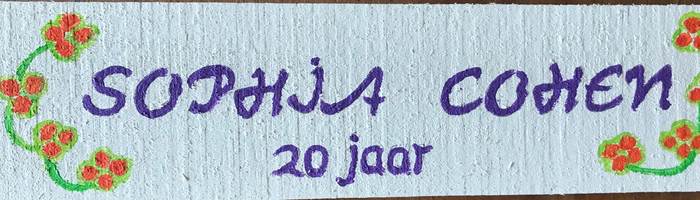 SOPHIA COHEN
20 jaar